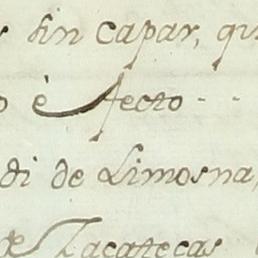 sin capar, qu
o è fecto - -
di de Limosna,
de Zacatecas